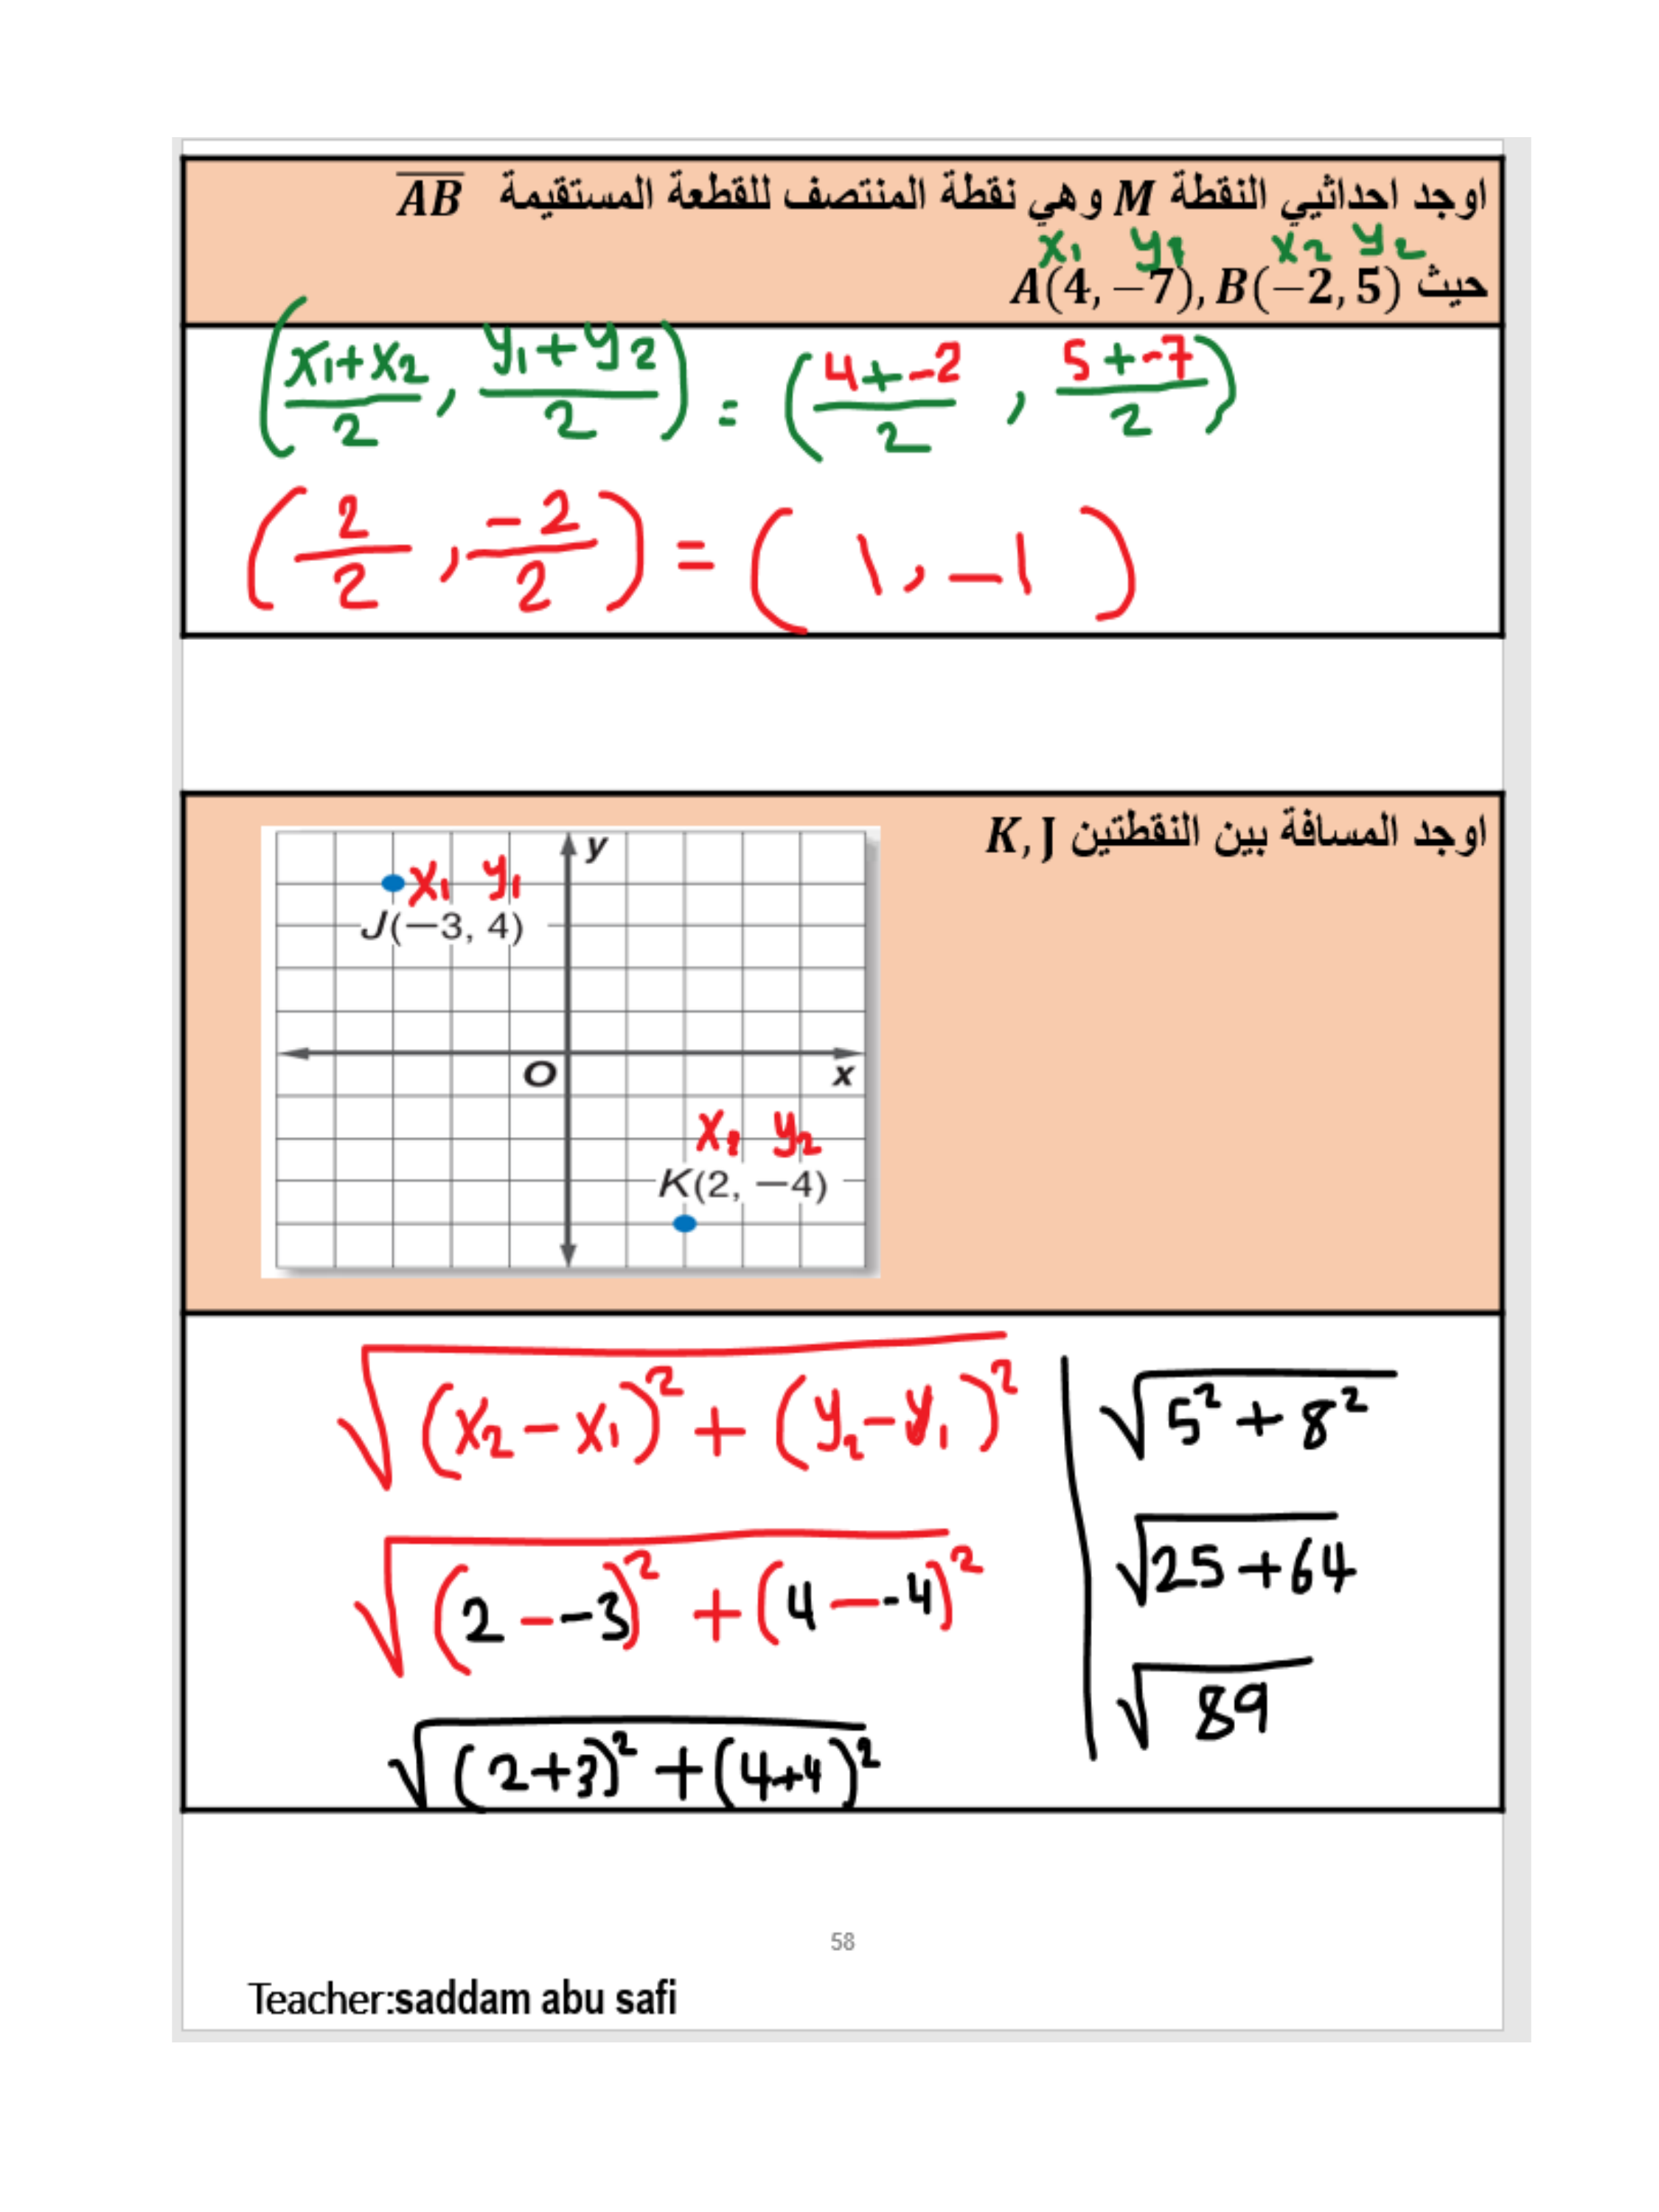 اوجد احداثيي النقطة M وهي نقطة المنتصف للقطعة المستقيمة AB
x₁ y₁ x₂ y₂
حيث A(4, −7), B(−2, 5)
((x₁+x₂)/2 , (y₁+y₂)/2) = ((4+-2)/2 , (5+-7)/2)
(2/2 , -2/2) = (1, -1)
اوجد المسافة بين النقطتين K, J
y
x₁ y₁
J(−3, 4)
O x
x₂ y₂
K(2, −4)
√((x₂-x₁)²+(y₂-y₁)²)
√((2--3)²+(4--4)²)
√((2+3)²+(4+4)²)
√(5²+8²)
√(25+64)
√89
58
Teacher:saddam abu safi